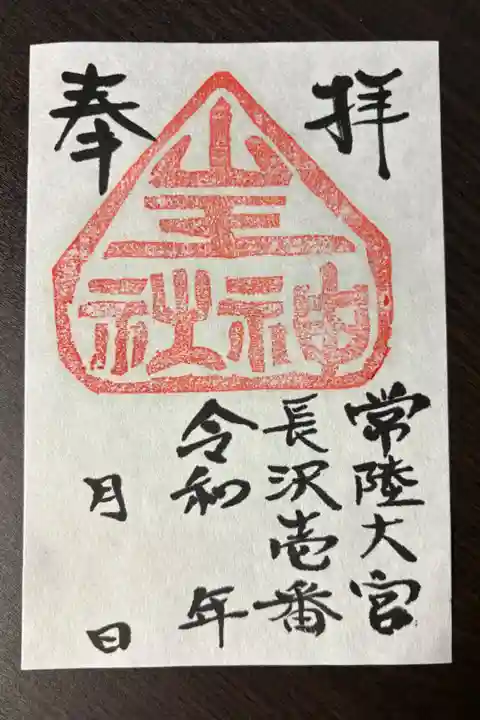 奉拝
山王
神社
常陸大宮
長沢壱番
令和　年
月　日